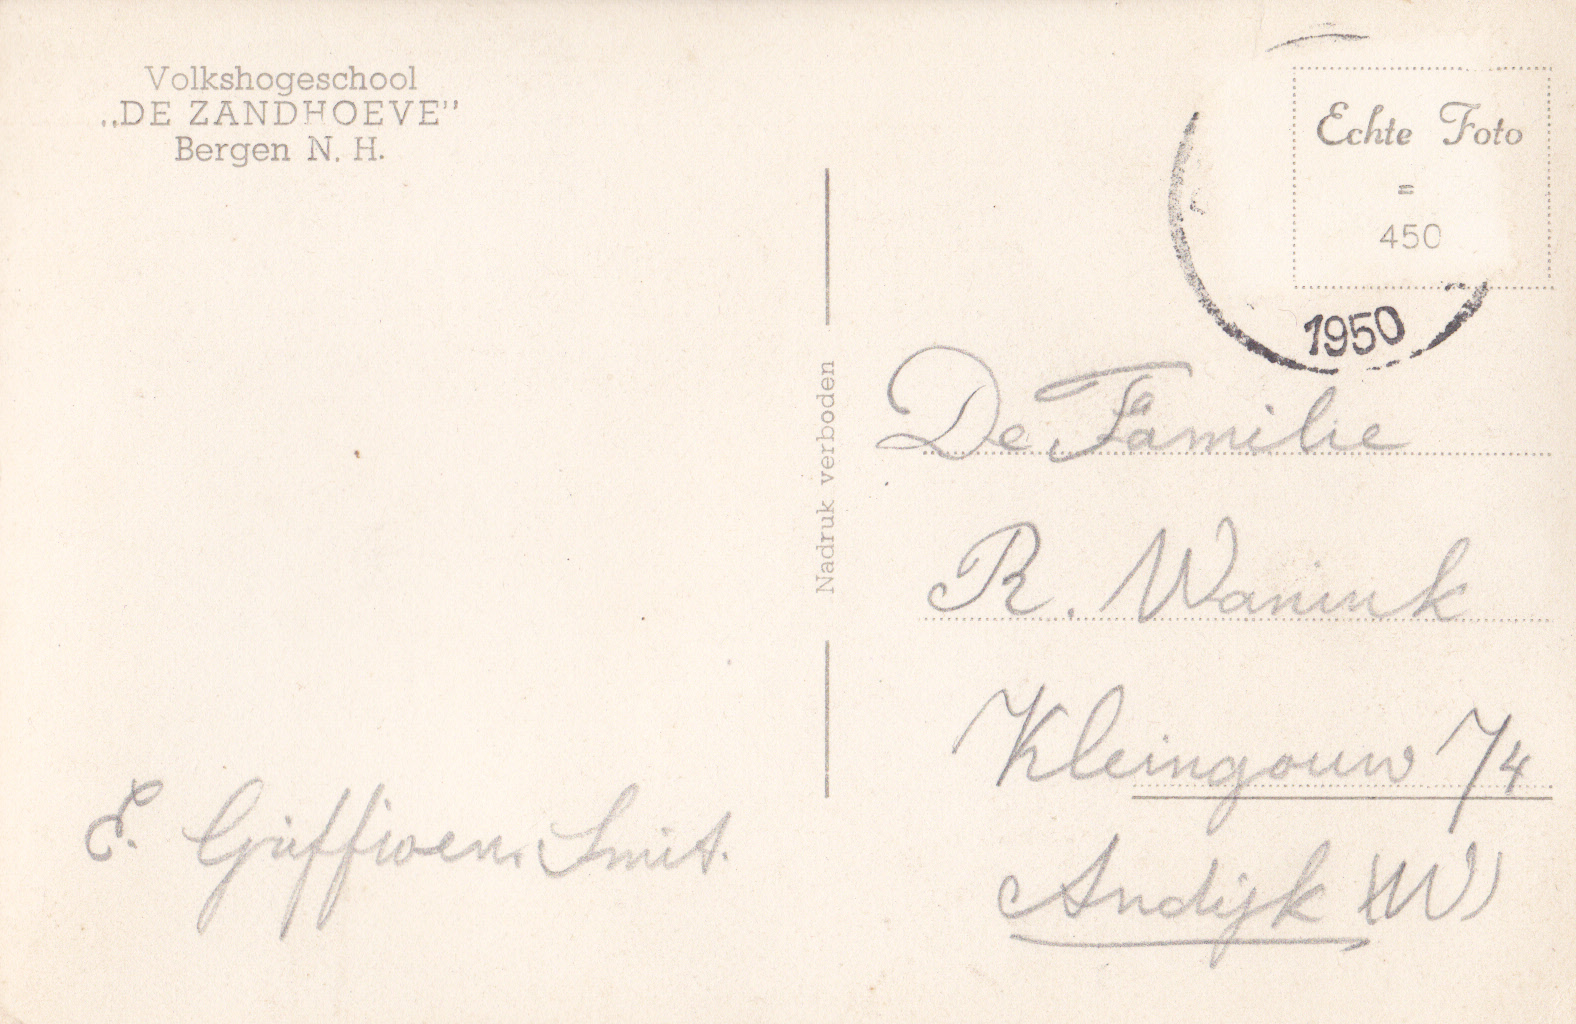 Volkshogeschool
„DE ZANDHOEVE”
Bergen N. H.
Echte Foto
=
450
1950
Nadruk verboden
De Familie
R. Wanink
Kleingouw 74
Andijk (W)
E. Smit.